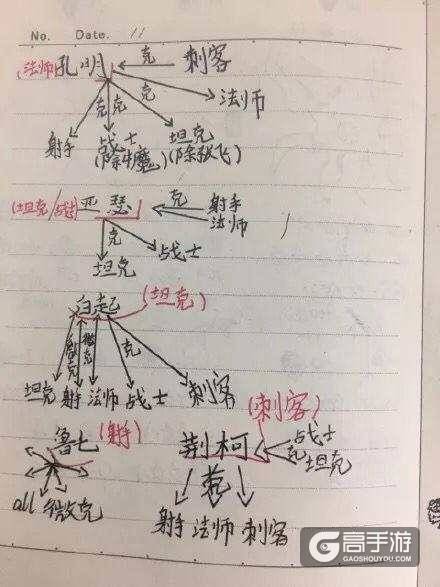 No. Date. 11
(法师) 孔明 克 刺客
克 克 克 法师
射手 战士 坦克
(除牛魔) (除张飞)
(坦克/战士) 亚瑟 克 射手
法师
克 战士
坦克
白起 (坦克)
克 微克 克
坦克 射手 法师 战士 刺客
鲁七 (射手) (刺客)
荆轲 克 战士
坦克
克
all 微克
射手 法师 刺客
高手游
GAOSHOUYOU.COM